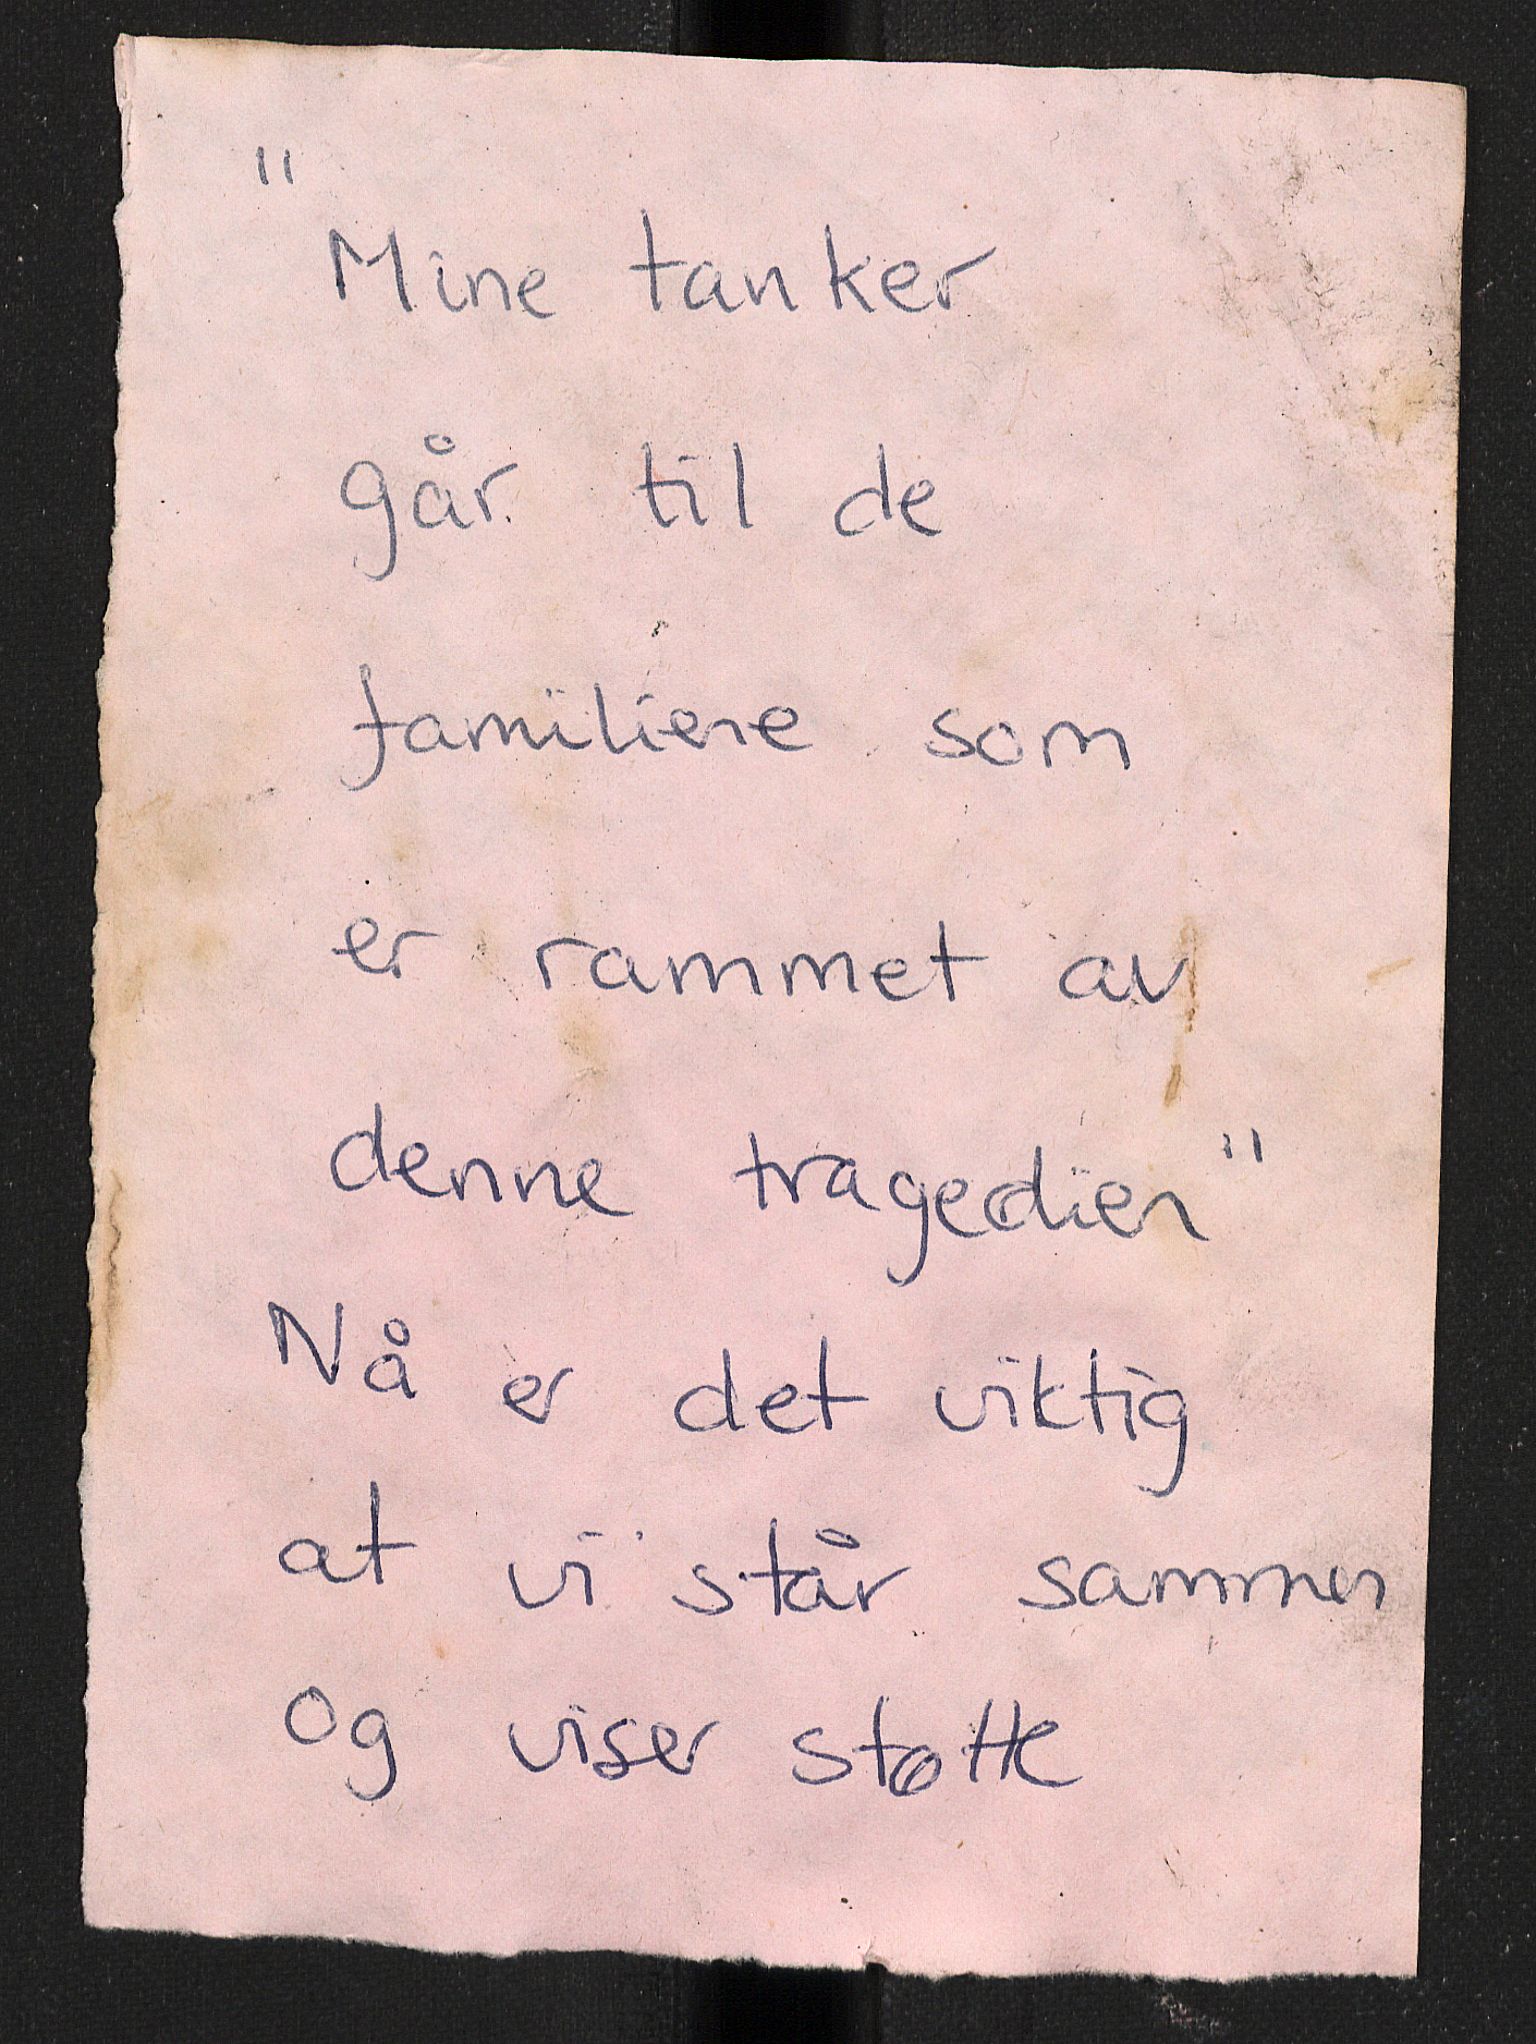 "Mine tanker
går til de
familiene som
er rammet av
denne tragedien"
Nå er det viktig
at vi står sammen
og viser støtte